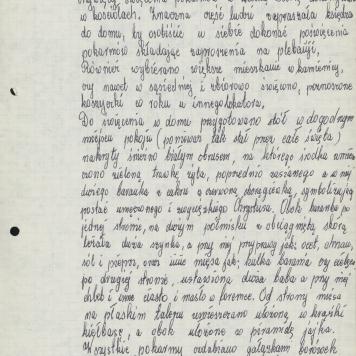 w kościołach. Znaczna część ludzi zapraszała księdza
do domu, by osobiście u siebie dokonać poświęcenia
pokarmów składając zaproszenia na plebanii.
Również wybierano większe mieszkanie w kamienicy,
czy nawet w sąsiedniej i zbiorowo święcono, poznoszone
koszyczki w roku u innego lokatora.
Do święcenia w domu przygotowano stół w dogodnym
miejscu pokoju (ponieważ tak stał przez całe święta)
nakryty śnieżno białym obrusem, na którego środku
zieloną trawkę żyta, poprzednio zasianego a w niej
baranka z cukru z czerwoną chorągiewką, symbolizującą
postać umęczonego i zwycięskiego Chrystusa. Obok baranka po
jednej stronie, na dużym półmisku z obciągniętą skórą
leżała duża szynka, a przy niej przyprawy jak: ocet, chrzan,
sól i pieprz, oraz inne mięsa jak: kulka barania czy cielęca
po drugiej stronie, ustawiona duża baba a przy niej
chleb i inne ciasto i masło w foremce. Od strony mięsa
na płaskim talerzu wypieszczano ułożoną w krążki
kiełbasę, a obok ułożone w piramidę jajka.
Wszystkie pokarmy ozdabiano gałązkami borówek